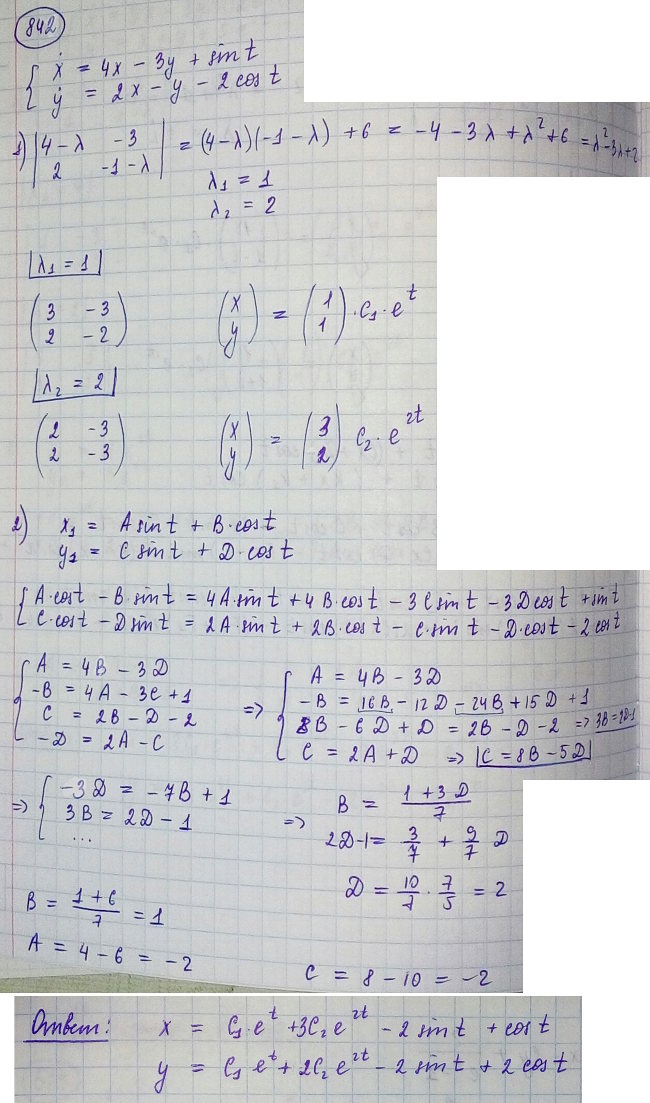 842
{ ẋ = 4x - 3y + sin t
ẏ = 2x - y - 2cos t
1) |4-λ -3| = (4-λ)(-1-λ) + 6 = -4 - 3λ + λ² + 6 = λ² - 3λ + 2
|2 -1-λ|
λ₁ = 1
λ₂ = 2
|λ₁ = 1|
(3 -3) (x) = (1) · C₁ · e^t
(2 -2) (y) (1)
|λ₂ = 2|
(2 -3) (x) = (3) C₂ · e^2t
(2 -3) (y) (2)
2) x₁ = A sin t + B · cos t
y₁ = C sin t + D · cos t
{ A·cos t - B·sin t = 4A·sin t + 4B·cos t - 3C sin t - 3D cos t + sin t
C·cos t - D sin t = 2A·sin t + 2B·cos t - C·sin t - D·cos t - 2cos t
{ A = 4B - 3D => { A = 4B - 3D
-B = 4A - 3C + 1 -B = 16B - 12D - 24B + 15D + 1
C = 2B - D - 2 8B - 6D + D = 2B - D - 2 => 3B = 2D-1
-D = 2A - C C = 2A + D => |C = 8B - 5D|
=> { -3D = -7B + 1 => B = (1 + 3D)/7
3B = 2D - 1 2D-1 = 3/7 + 9/7 D
... D = 10/7 · 7/5 = 2
B = (1+6)/7 = 1
A = 4 - 6 = -2 C = 8 - 10 = -2
Ответ: x = C₁·e^t + 3C₂e^2t - 2 sin t + cos t
y = C₁ e^t + 2C₂e^2t - 2 sin t + 2 cos t